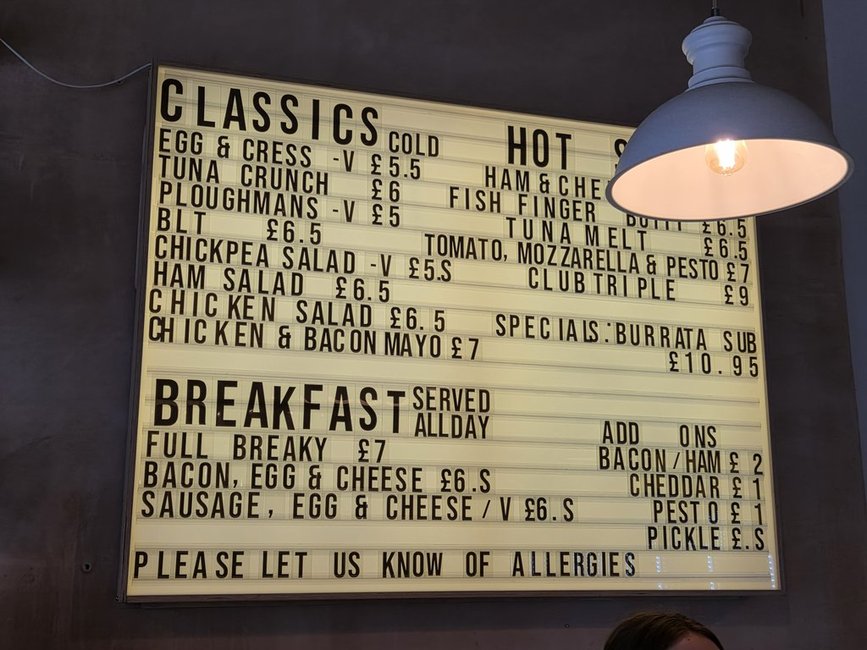 CLASSICS COLD
EGG & CRESS -V £5.5
TUNA CRUNCH £6
PLOUGHMANS -V £5
BLT £6.5
CHICKPEA SALAD -V £5.S
HAM SALAD £6.5
CHICKEN SALAD £6.5
CHICKEN & BACON MAYO £7
HOT
HAM & CHE
FISH FINGER £6.5
TUNA MELT £6.5
TOMATO, MOZZARELLA & PESTO £7
CLUB TRIPLE £9
SPECIALS:BURRATA SUB
£10.95
BREAKFAST SERVED
ALLDAY
FULL BREAKY £7
BACON, EGG & CHEESE £6.S
SAUSAGE, EGG & CHEESE / V £6.S
ADD ONS
BACON/HAM £2
CHEDDAR £1
PESTO £1
PICKLE £.S
PLEASE LET US KNOW OF ALLERGIES